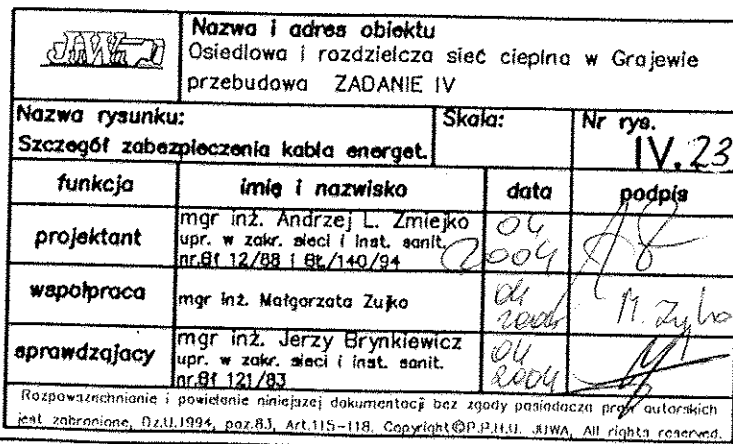 JUWA
Nazwa i adres obiektu
Osiedlowa i rozdzielcza sieć cieplna w Grajewie
przebudowa ZADANIE IV
Nazwa rysunku:
Szczegół zabezpieczenia kabla energet.
Skala:
Nr rys.
IV.23
funkcja imię i nazwisko data podpis
projektant
mgr inż. Andrzej L. Zmiejko
upr. w zakr. sieci i inst. sanit.
nr.Bł 12/88 i Bł/140/94
04
2004
współpraca
mgr inż. Małgorzata Zujko
04
2004
M. Zujko
sprawdzający
mgr inż. Jerzy Brynkiewicz
upr. w zakr. sieci i inst. sanit.
nr.Bł 121/83
04
2004
Rozpowszechnianie i powielanie niniejszej dokumentacji bez zgody posiadacza praw autorskich
jest zabronione, Dz.U.1994, poz.83, Art.115-118. Copyright©P.P.H.U. JUWA, All rights reserved.